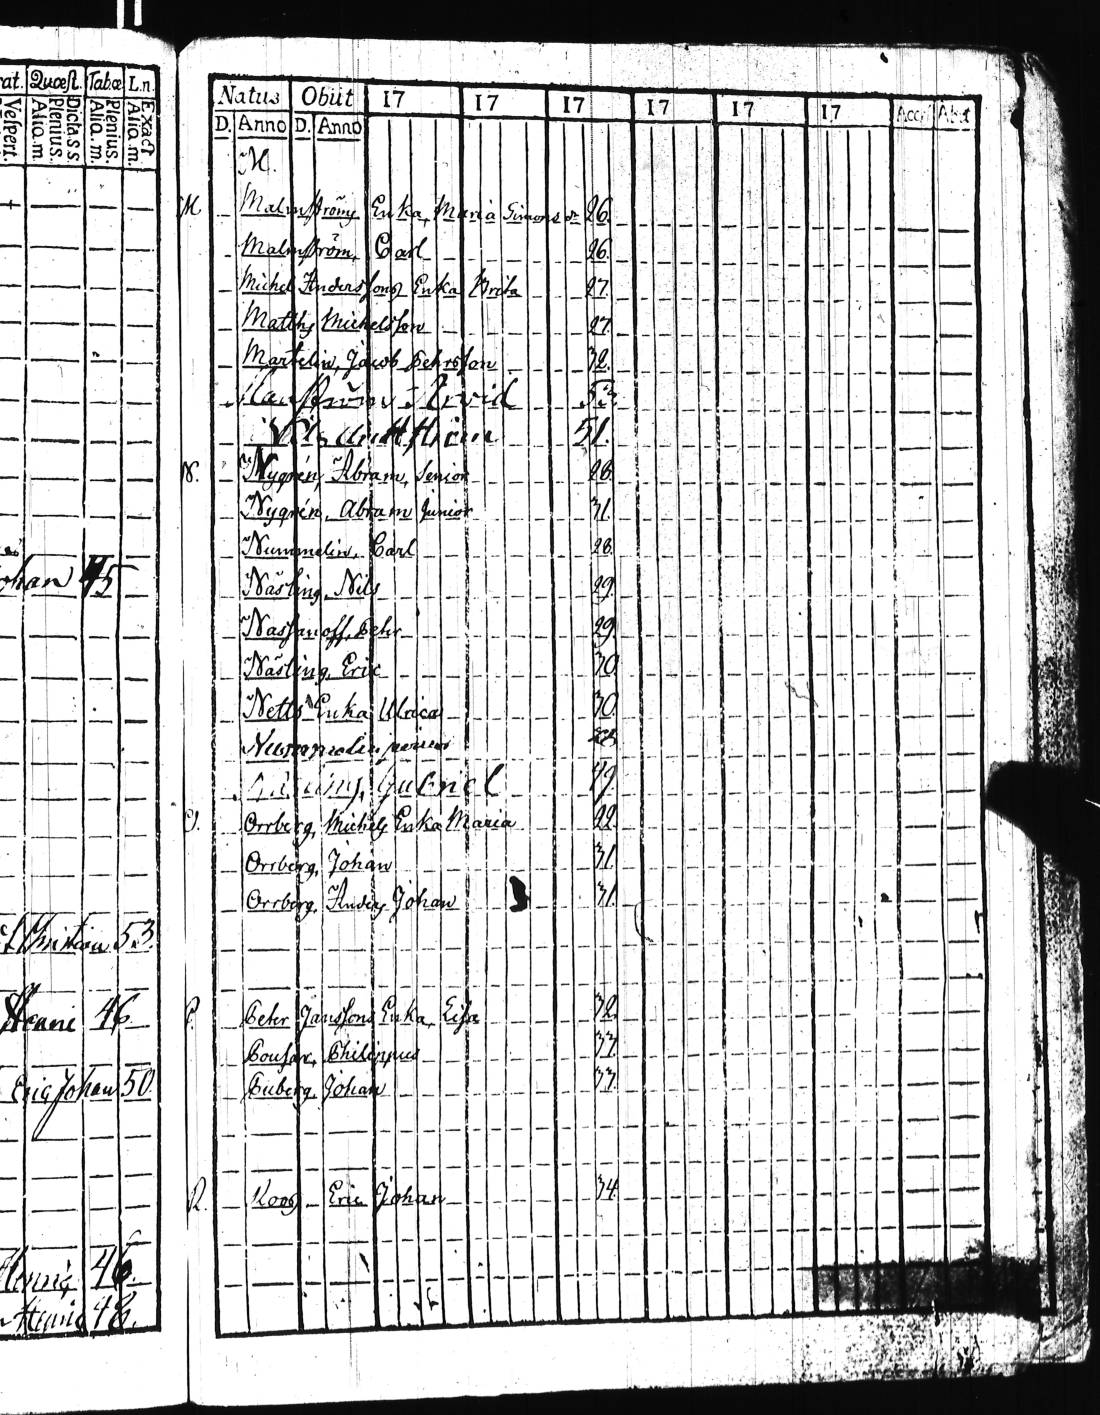 Quæst. Tabæ L.n.
Vespert. Alia.m. Plenius. Dicta.s.s. Alia.m. Plenius. Alia.m. Exact
Johan 45
Christian 53.
46.
Eric Johan 50.
46.
48.
Natus Obiit 17 17 17 17 17 17 Acceſ Abit
D. Anno D. Anno
M.
M Malmström Enka, Maria Simons dr 26.
Malmström, Carl 26.
Michel Anderssons Enka Brita 27.
Matths Michelsson 27.
Martelin, Jacob Pehrsson 32.
Arvid 53.
51.
N. Nygrén, Abram, Senior 28.
Nygrén, Abram Junior 31.
Nummelin, Carl 28.
Näsling, Nils 29.
Nassanoff, Pehr 29.
Näsling, Eric 30.
Netts Enka Ulrica 30.
Nummelin
Gabriel 49.
O. Orrberg, Michels Enka Maria 22.
Orrberg, Johan 31.
Orrberg, Anders Johan 31.
P. Pehr Janssons Enka, Lisa 32.
Pousar, Philippus 33.
Puberg, Johan 33.
R. Roos Eric Johan 34.